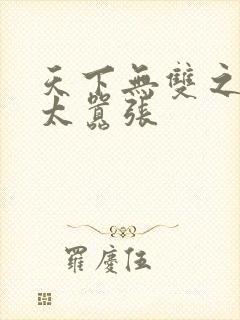 天下無雙之
太囂張
羅慶伍